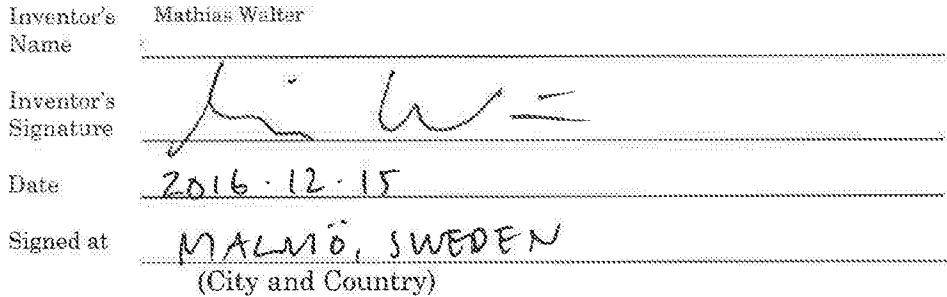 Inventor's Mathias Walter
Name
Inventor's
Signature
Date 2016.12.15
Signed at MALMÖ, SWEDEN
(City and Country)